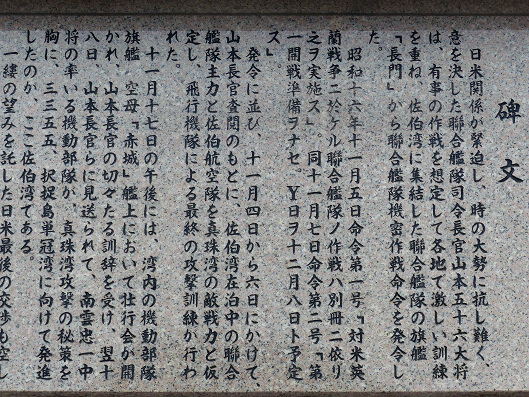 碑文
日米関係が緊迫し、時の大勢に抗し難く、
意を決した聯合艦隊司令長官山本五十六大将
は、有事の作戦を想定して各地で激しい訓練
を重ね、佐伯湾に集結した聯合艦隊の旗艦
「長門」から聯合艦隊機密作戦命令を発令し
た。
昭和十六年十一月五日命令第一号「対米英
蘭戦争ニ於ケル聯合艦隊ノ作戦ハ別冊ニ依リ
之ヲ実施ス」。同十一月七日命令第二号「第
一開戦準備ヲナセ。Y日ヲ十二月八日ト予定
ス」
発令に並び、十一月四日から六日にかけて、
山本長官査閲のもとに、佐伯湾在泊中の聯合
艦隊主力と佐伯航空隊を真珠湾の敵戦力と仮
定し、飛行機隊による最終の攻撃訓練が行わ
れた。
十一月十七日の午後には、湾内の機動部隊
旗艦、空母「赤城」艦上において壮行会が開
かれ、山本長官の切々たる訓辞を受け、翌十
八日、山本長官らに見送られて、南雲忠一中
将の率いる機動部隊が、真珠湾攻撃の秘策を
胸に、三三五五、択捉島単冠湾に向けて発進
したのが、ここ佐伯湾である。
一縷の望みを託した日米最後の交渉も空し